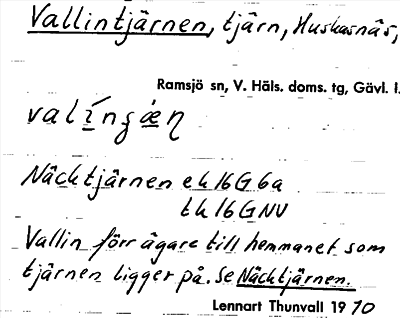 Vallintjärnen, tjärn, Huskasnäs,
Ramsjö sn, V. Häls. doms. tg, Gävl. l.
Näcktjärnen ek 16G 6a
tk 16G NV
Vallin förr ägare till hemmanet som
tjärnen ligger på. Se Näcktjärnen.
Lennart Thunvall 1970